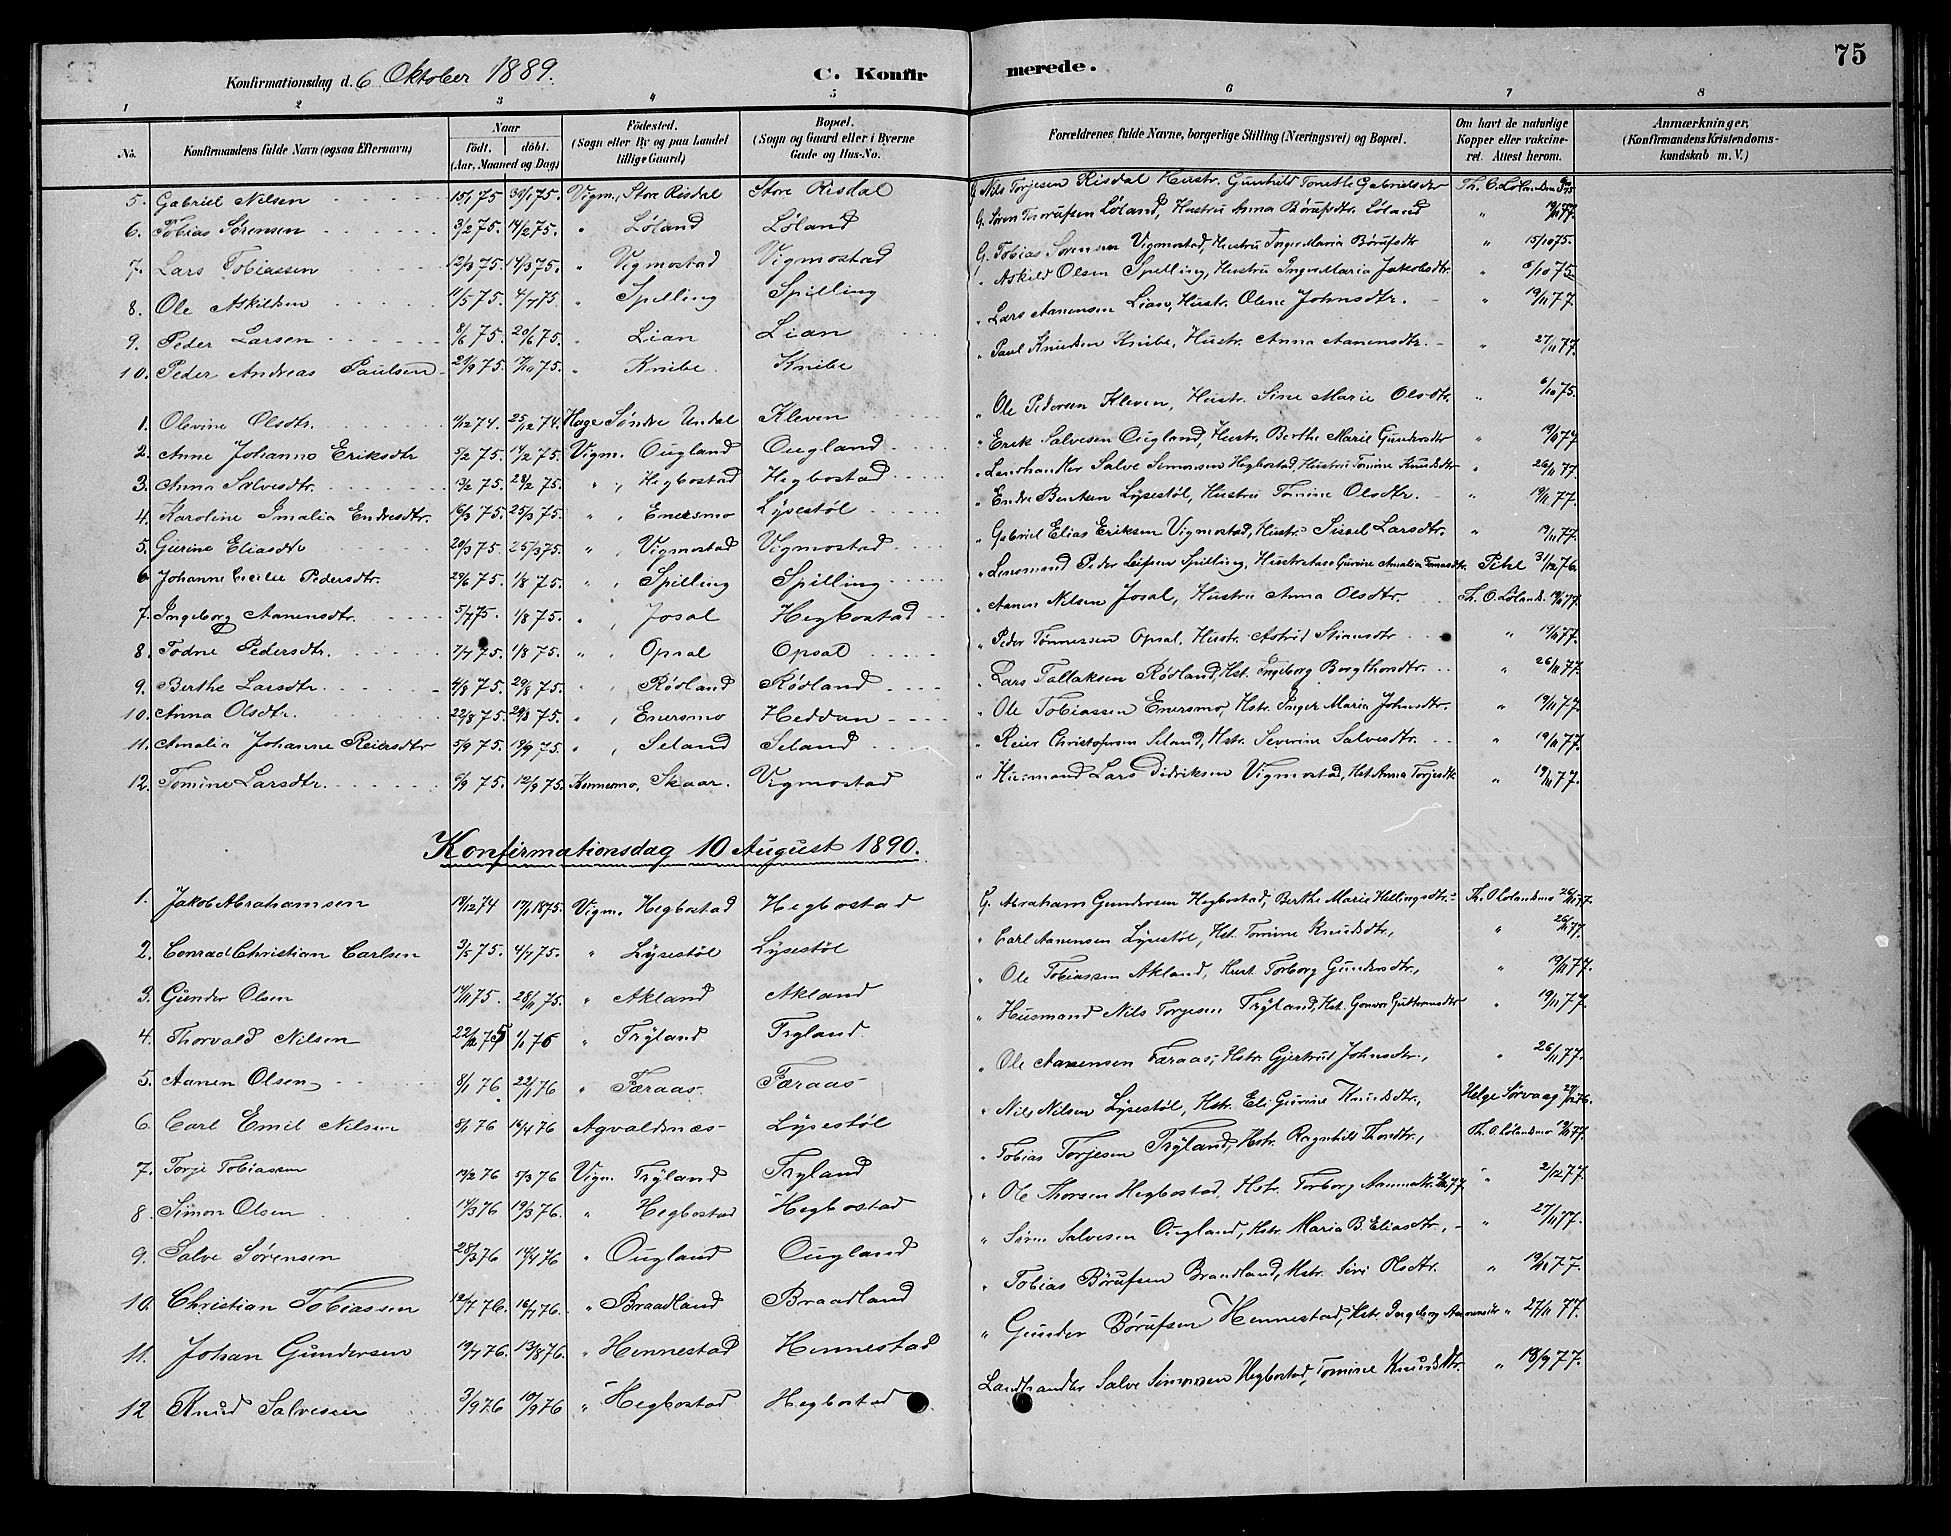 75
Konfirmationsdag d. 6 Oktober 1889.
C. Konfirmerede.
1 2 3 4 5 6 7 8
No. Konfirmandens fulde Navn (ogsaa Efternavn) Naar født. døbt. (Aar, Maaned og Dag) Fødested. (Sogn eller By og paa Landet tillige Gaard) Bopæl. (Sogn og Gaard eller i Byerne Gade og Hus-No. Forældrenes fulde Navne, borgerlige Stilling (Næringsvei) og Bopæl. Om havt de naturlige Kopper eller vakcineret. Attest herom. Anmærkninger, (Konfirmandens Kristendomskundskab m. V.)
5. Gabriel Nilsen 15/1 75 30/1 75. Vigm., Store Risdal Store Risdal Nils Torjesen Risdal Hustr. Gunhild Tonette Gabrielsdtr Th. O. Lølandsmo
6. Tobias Sørensen 3/2 75. 14/2 75. " Løland Løland G. Søren Løland, Hustru Anna Børufsdtr. Løland " 19/11 77.
7. Lars Tobiassen 12/3 75. 14/3 75. " Vigmostad Vigmostad G. Tobias Sørensen Vigmostad, Hustru Inger Maria Børufsdtr " 15/10 75.
8. Ole Askildsen 11/5 75. 4/7 75. " Spilling Spilling " Askild Olsen Spilling, Hustru Inger Maria Jakobsdtr. " 6/10 75.
9. Peder Larsen 8/6 75. 20/6 75. " Lian Lian " Lars Aanensen Lian, Hustr. Olene Johnsdtr. " 19/11 77.
10. Peder Andreas Paulsen 21/9 75. 75. " Knibe. Knibe " Paul Knudsen Knibe, Hustr. Anna Aanensdtr. " 27/11 77.
1. Olevine Olsdtr. 11/12 74. 25/12 74. Hage Søndre Undal Kleven " Ole Pedersen Kleven, Hustr. Sine Marie Olsdtr. " 6/10 75.
2. Anne Johanne Eriksdtr 5/2 75. 14/2 75. Vigm. Ougland Ougland " Erik Salvesen Ougland, Hustr. Berthe Marie Gundersdtr " 19/11 77
3. Anna Salvesdtr. 13/2 75. 28/2 75. " " Hegbostad Hegbostad " Landhandler Salve Simonsen Hegbostad, Hustru Tomine Knudsdtr " 26/11 77.
4. Karoline Amalia Endresdtr. 16/3 75. 25/3 75. " " Enersmo Lysestøl " Endre Bentsen Lysestøl, Hustru Tomine Olsdtr. " 19/11 77.
5. Gurine Eliasdtr 20/3 75. 25/3 75. " " Vigmostad Vigmostad " Gabriel Elias Eriksen Vigmostad, Hustr. Sissel Larsdtr. " 19/11 77.
6 Johanne Cecilie Pedersdtr. 29/6 75. 1/8 75. " " Spilling Spilling " Lensmand Peder Leifsen Spilling, Hustru Gurine Amalia Pihl 31/12 76.
7. Ingeborg Aanensdtr. 5/7 75. 1/8 75. " " Josal Hegbostad " Aanen Nilsen Josal, Hustru Anna Olsdtr. Th. O. Lølands. 19/11 77.
8. Todne Pedersdtr. 7/7 75. 1/8 75. " " Opsal Opsal " Peder Tønnessen Opsal, Hustr. Astrid Stinesdtr " 19/11 77.
9. Berthe Larsdtr. 4/8 75. 29/8 75. " " Rødland Rødland " Lars Tallaksen Rødland, Hst. Ingeborg Bergthorsdtr. " 26/11 77.
10. Anna Olsdtr. 22/8 75. 29/8 75. " " Enersmo Heddan " Ole Tobiassen Enersmo, Hstr. Inger Maria Johnsdtr. " 19/11 77.
11. Amalia Johanne Reiersdtr 5/9 75. 19/9 75. " " Seland Seland " Reier Christofersen Seland, Hstr. Severine Salvesdtr. " 19/11 77.
12. Tomine Larsdtr. 6/9 75. 12/9 75. Konnesmo, Skaar. Vigmostad " Husmand Lars Didriksen Vigmostad, Hst. Anna Torjesdtr " 19/11 77.
Konfirmationsdag 10 August 1890.
1. Jakob Abrahamsen 19/12 74 17/1 1875. Vigm. Hegbostad Hegbostad G. Abraham Gundersen Hegbostad, Berthe Marie Hellingsdtr. Th. O Lølandsmo 26/11 77.
2. Conrad Christian Carlsen 3/5 75. 4/7 75. " Lysestøl Lysestøl " Carl Aanensen Lysestøl, Hst. Tomine Knudsdtr, " 26/11 77.
3. Gunder Olsen 14/11 75. 28/11 75. " Akland Akland " Ole Tobiassen Akland, Hust. Torborg Gundersdtr., " 19/11 77.
4. Thorvald Nilsen 22/12 75 1/1 76 " Tryland Tryland " Husmand Nils Torjesen Tryland, Hst. Gonvor Guttormsdtr " 19/11 77.
5. Aanen Olsen 8/1 76. 22/1 76 " Færaas Færaas " Ole Aanensen Færaas, Hstr. Gjertrud Johnsdtr., " 26/11 77.
6. Carl Emil Nilsen 8/1 76 14/4 76 Agvaldsnæs Lysestøl " Nils Nilsen Lysestøl, Hstr. Eli Gurine Knudsdtr., Helge Sørvaag 76.
7. Torje Tobiassen 19/2 76 5/3 76 Vigm. Tryland Tryland " Tobias Torjesen Tryland, Hstr. Ragnhild Thorsdtr., Th. O. Lølandsmo 19/11 77.
8. Simon Olsen 14/3 76 19/3 76. " Hegbostad Hegbostad " Ole Thorsen Hegbostad, Hstr. Torborg " 2/12 77.
9. Salve Sørensen 28/3 76 14/4 76 " Ougland Ougland " Søren Salvesen Ougland, Hstr. Maria B. Eliasdtr., " 27/11 77.
10. Christian Tobiassen 12/7 76. 16/7 76. " Braadland Braadland " Tobias Børufsen Brandland, Hstr. Siri Olsdtr. " 19/11 77.
11. Johan Gundersen 19/7 76. 13/8 76. " Hennestad Hennestad " Gunder Børufsen Hennestad, Hstr. Ingeborg Aanensdtr " 27/11 77.
12 Knud Salvesen 3/9 76 10/9 76 " Hegbostad Hegbostad Landhandler Salve Simonsen Hegbostad, Tomine Knudsdtr. " 18/9 77.